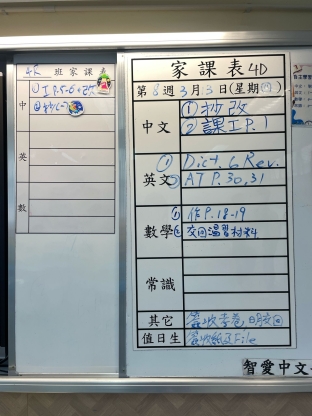 4R 班家課表
中
①I P.5-6+改
②抄(一)
英
數
家課表 4D
第 8 週 3 月 3 日(星期四)
中文
①抄改
②課I P.1
英文
①Dict. 6 Rev.
②AT P.30,31
數學
①作P.18-19
②交回溫習材料
常識
其它
簽收季卷 明交回
值日生
簽收紙及File
智愛中文